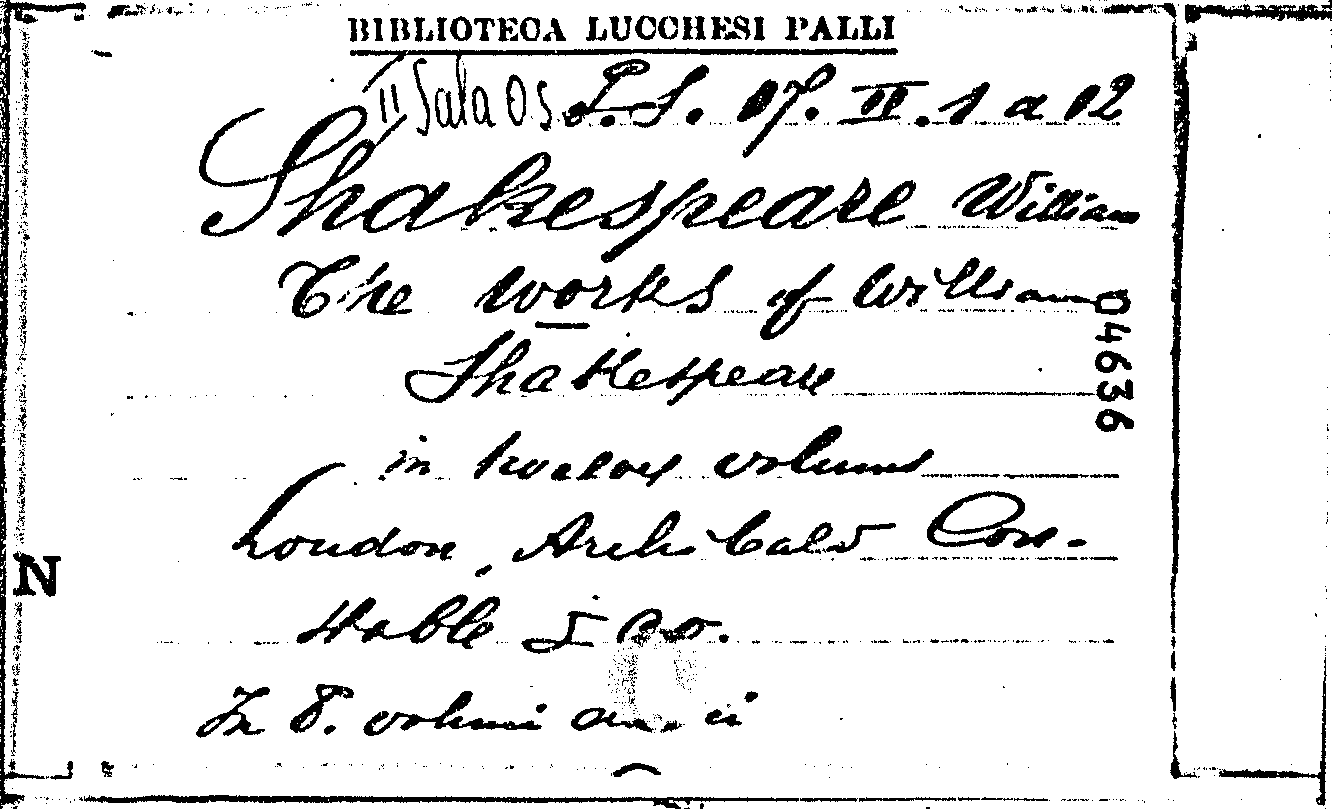 BIBLIOTECA LUCCHESI PALLI
II Sala OS P.S. 17. III. 1 a 12
Shakespeare William
The works of William
04636
Shakespeare
in twelve volumes
London, Archibald Con-
N
stable & Co.
In 8. volumi